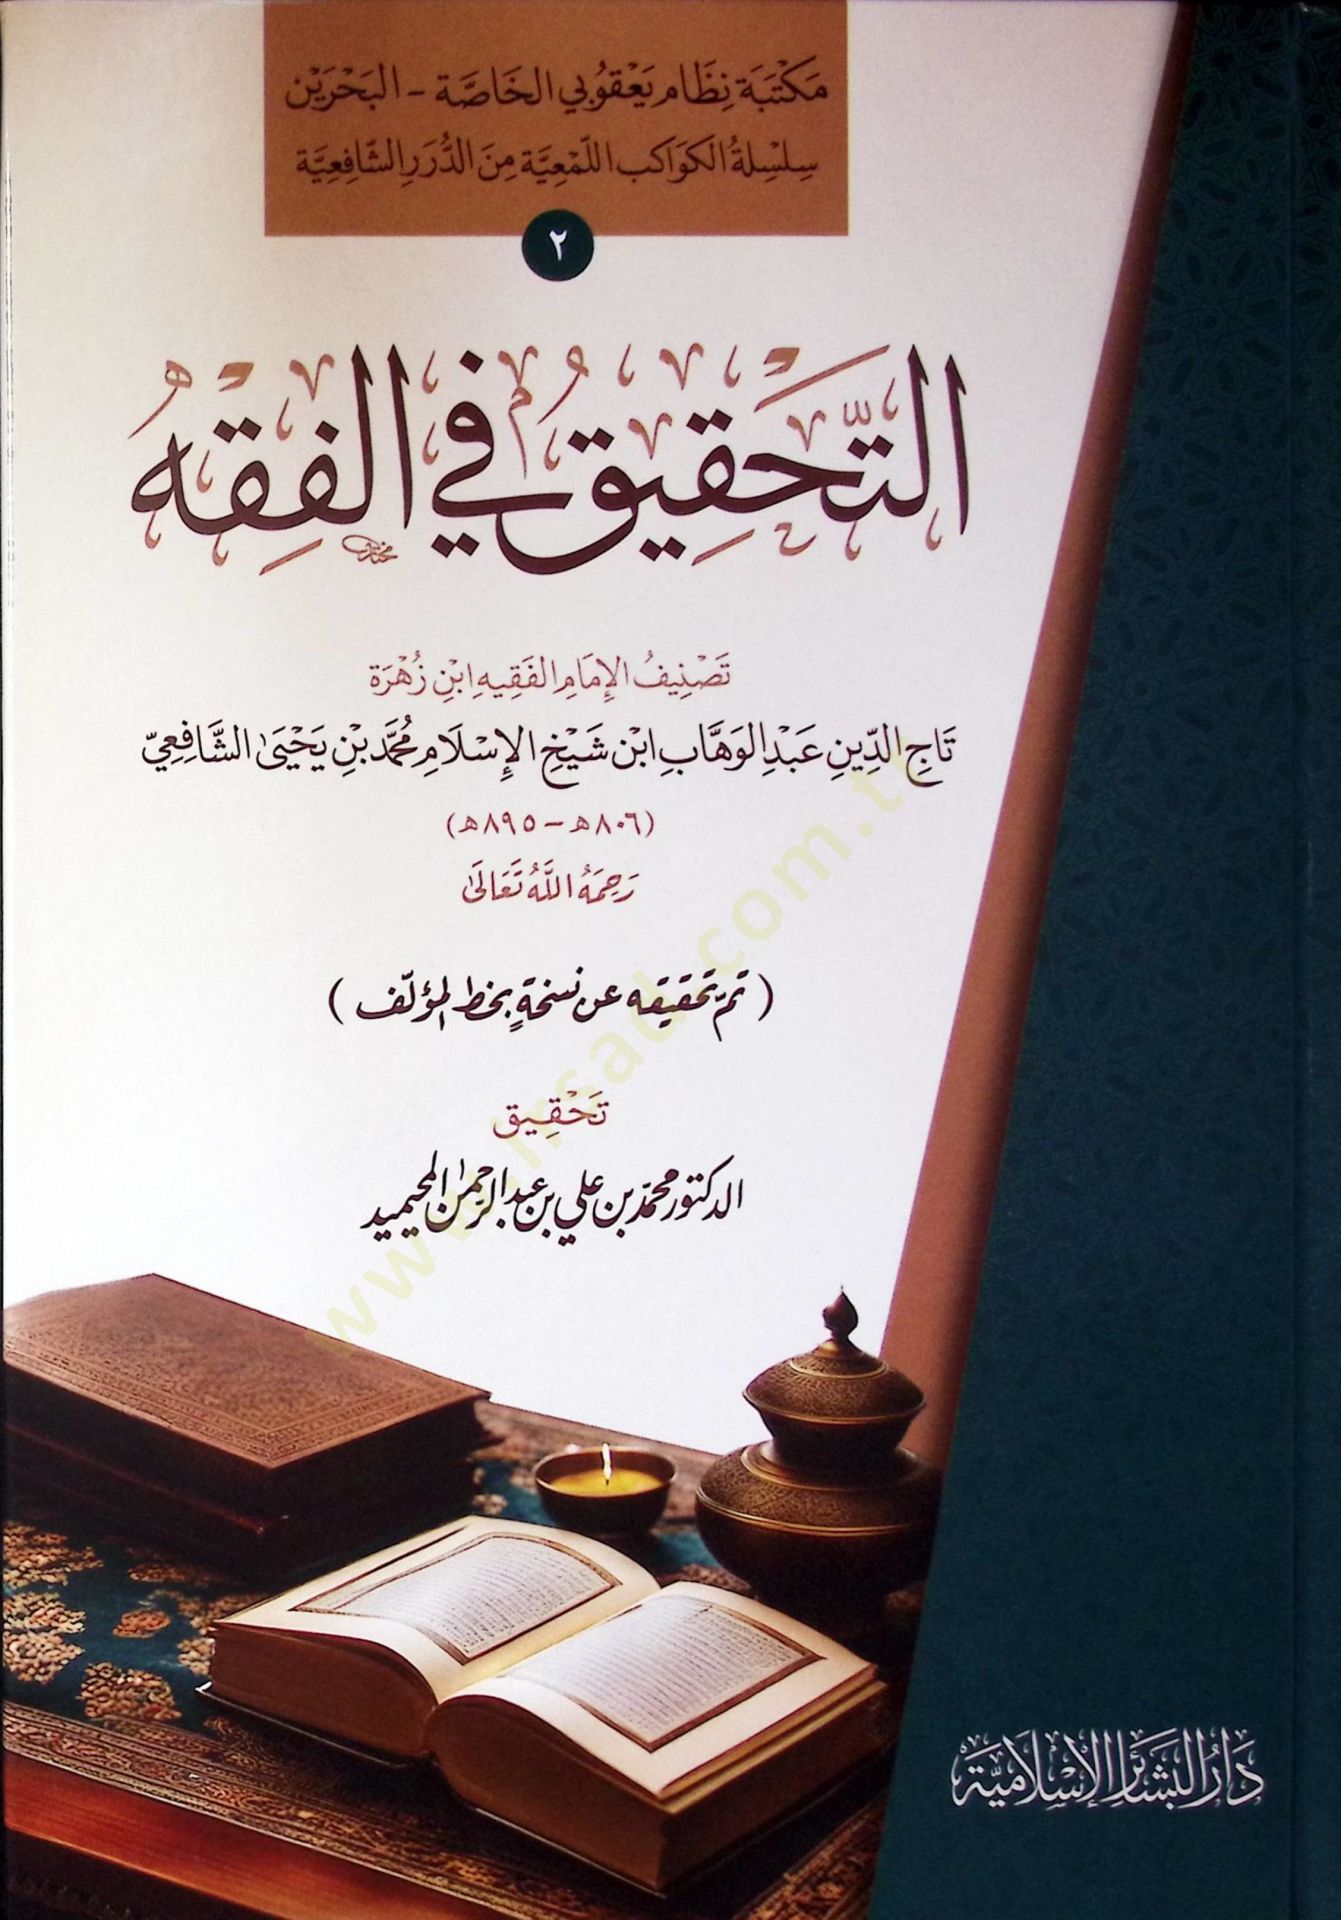 مَكْتَبَة نِظَام يَعْقُوبي الخَاصَّة - البَحْرَيْن
سِلْسِلَةُ الكَوَاكِب اللَّمْعِيَّة مِنَ الدُّرَرِ الشَّافِعِيَّة
٢
التَّحْقِيقُ فِي الفِقْهِ
تَصْنِيفُ الإِمَامِ الفَقِيهِ ابْنِ زُهْرَة
تَاجِ الدِّينِ عَبْدِ الوَهَّابِ ابْنِ شَيْخِ الإِسْلَامِ مُحَمَّد بْنِ يَحْيَىٰ الشَّافِعِيّ
(٨٠٦هـ - ٨٩٥هـ)
رَحِمَهُ اللَّهُ تَعَالَىٰ
(تمّ تحقيقه عن نسخةٍ بخط المؤلّف)
تَحْقِيق
الدكتور محمّد بن علي بن عبد الرَّحمٰن المحيميد
دَارُ البَشَائِرِ الإِسْلَامِيَّة